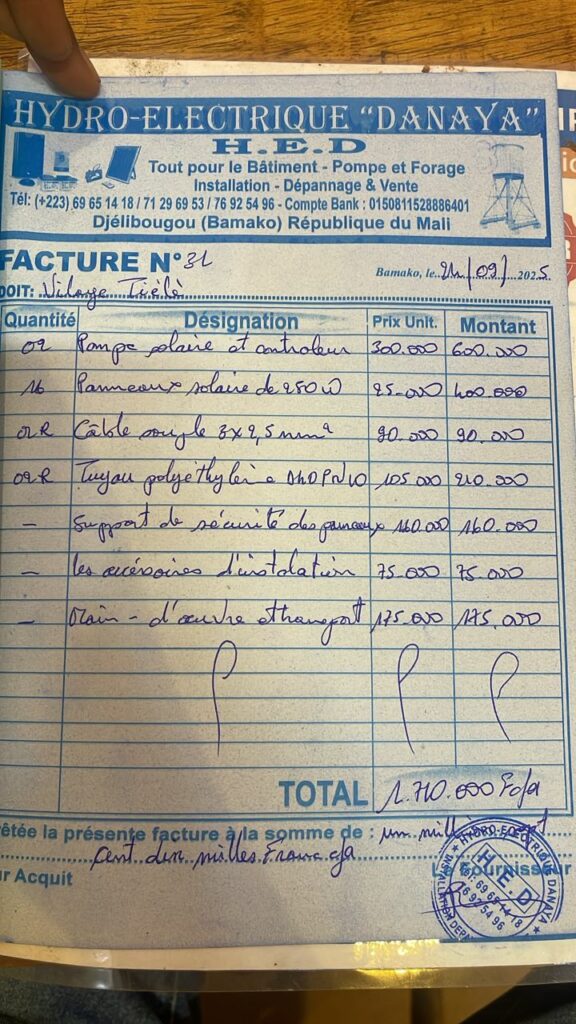 HYDRO-ELECTRIQUE "DANAYA"
H.E.D
Tout pour le Bâtiment - Pompe et Forage
Installation - Dépannage & Vente
Tél: (+223) 69 65 14 18 / 71 29 69 53 / 76 92 54 96 - Compte Bank : 0150811528886401
Djélibougou (Bamako) République du Mali
FACTURE N° 31
Bamako, le 24/09/ 2025
DOIT: Vilage Tiélè
Quantité Désignation Prix Unit. Montant
02 Pompe solaire et controleur 300.000 600.000
16 Panneaux solaire de 250 W 25.000 400.000
01R Câble souple 3x2,5mm² 90.000 90.000
02R Tuyau polyéthylène D40 PN10 105.000 210.000
- Support de sécurité des panneaux 160.000 160.000
- les accésoires d'instalation 75.000 75.000
- Main-d'œuvre et transport 175.000 175.000
TOTAL 1.710.000 Fcfa
rêtée la présente facture à la somme de : un million sept
cent dix milles Franc cfa
ur Acquit Le Fournisseur
HYDRO-ELECTRIQUE DANAYA
H.E.D
Tel: 69 65 14 18
76 92 54 96